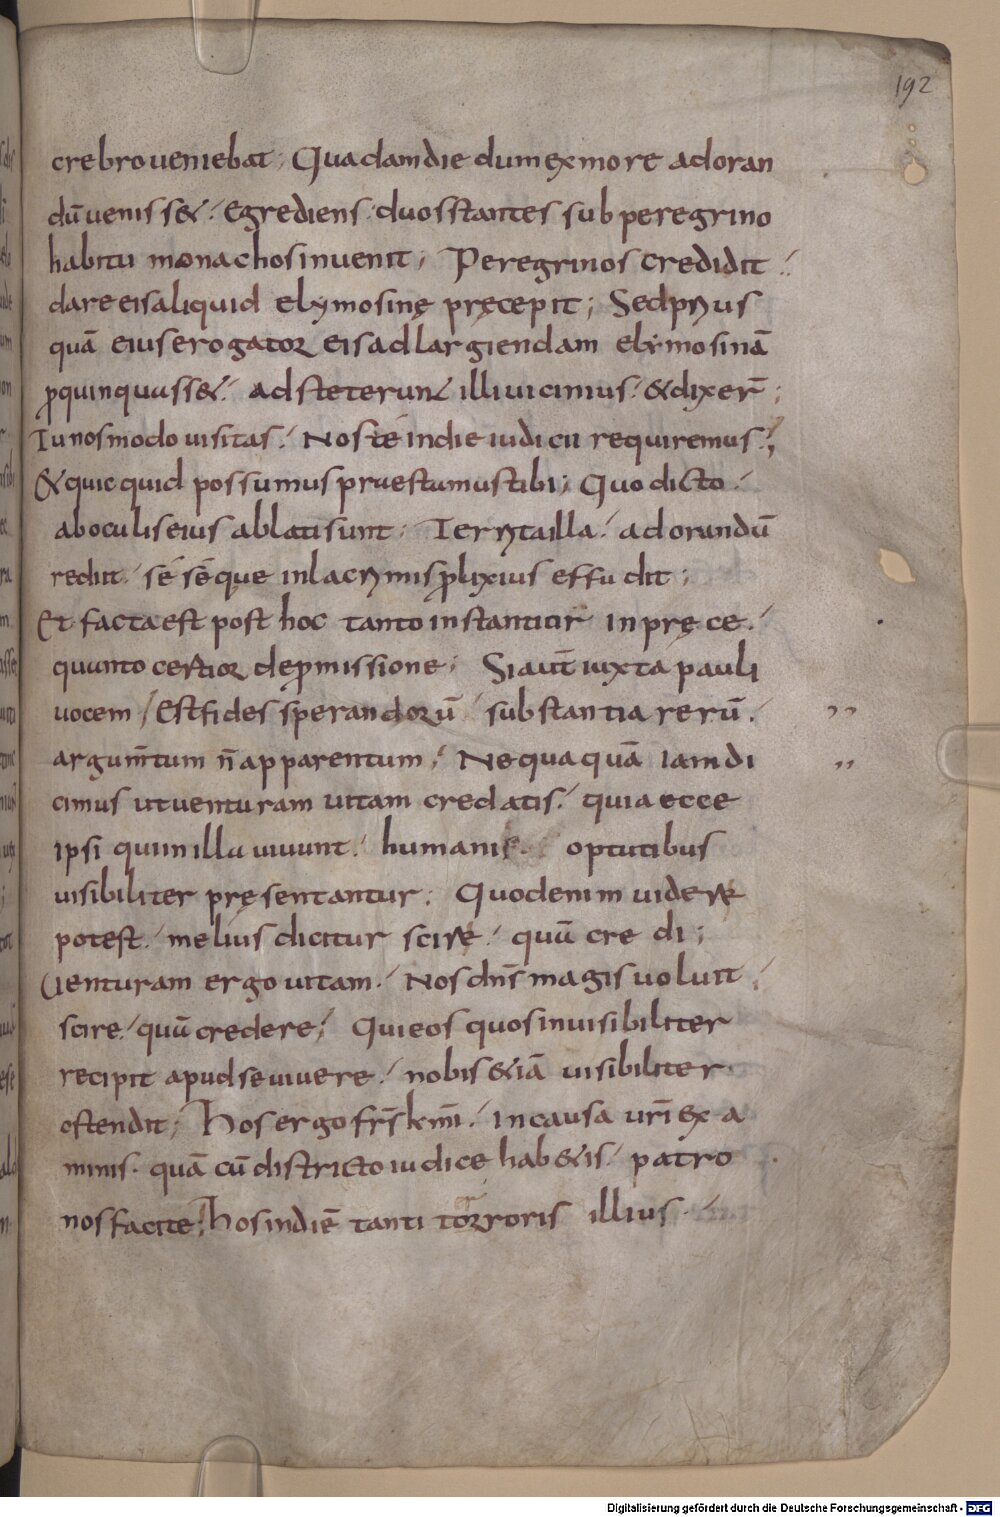 192
crebro ueniebat; Quadam die dum ex more adoran
dū uenisset. Egrediens duos stantes sub peregrino
habitu monachos inuenit; Peregrinos credidit.
dare eis aliquid elymosinę pręcepit; Sed prius
quā eius erogator eis ad largiendam elymosinā
ꝓquinquasset. adsteterunt illi uicinius. & dixer̄;
Tu nos modo uisitas. Nos té in die iudicii requiremus;
& quicquid possumus praestamus tibi; Quo dicto.
ab oculis eius ablati sunt; Territa illa. ad orandū
rediit. sé séque in lacrimis ꝓlixius effudit;
Et facta est post hoc tanto instantior in pręce.
quanto certior de ꝓmissione; Si aut̄ iuxta pauli
uocem / Est fides sperandorū substantia rerū.
argum̄tum n̄ apparentum; Nequaquā iam di
cimus ut uenturam uitam credatis. quia ecce
ipsi qui in illa uiuunt. humanis. optutibus
uisibiliter pręsentantur; Quod enim uidere
potest. melius dicitur scire. quā credi;
Uenturam ergo uitam. Nos dn̄s magis uoluit.
scire. quā credere; Qui eos quos inuisibiliter
recipit apud se uiuere. nobis &iā uisibiliter
ostendit; Hos ergo fr̄s kmī. in causa ur̄i exa
minis. quā cū districto iudice hab&is. patro
nos facite; Hos in diē tanti terroris illius.
Digitalisierung gefördert durch die Deutsche Forschungsgemeinschaft - DFG